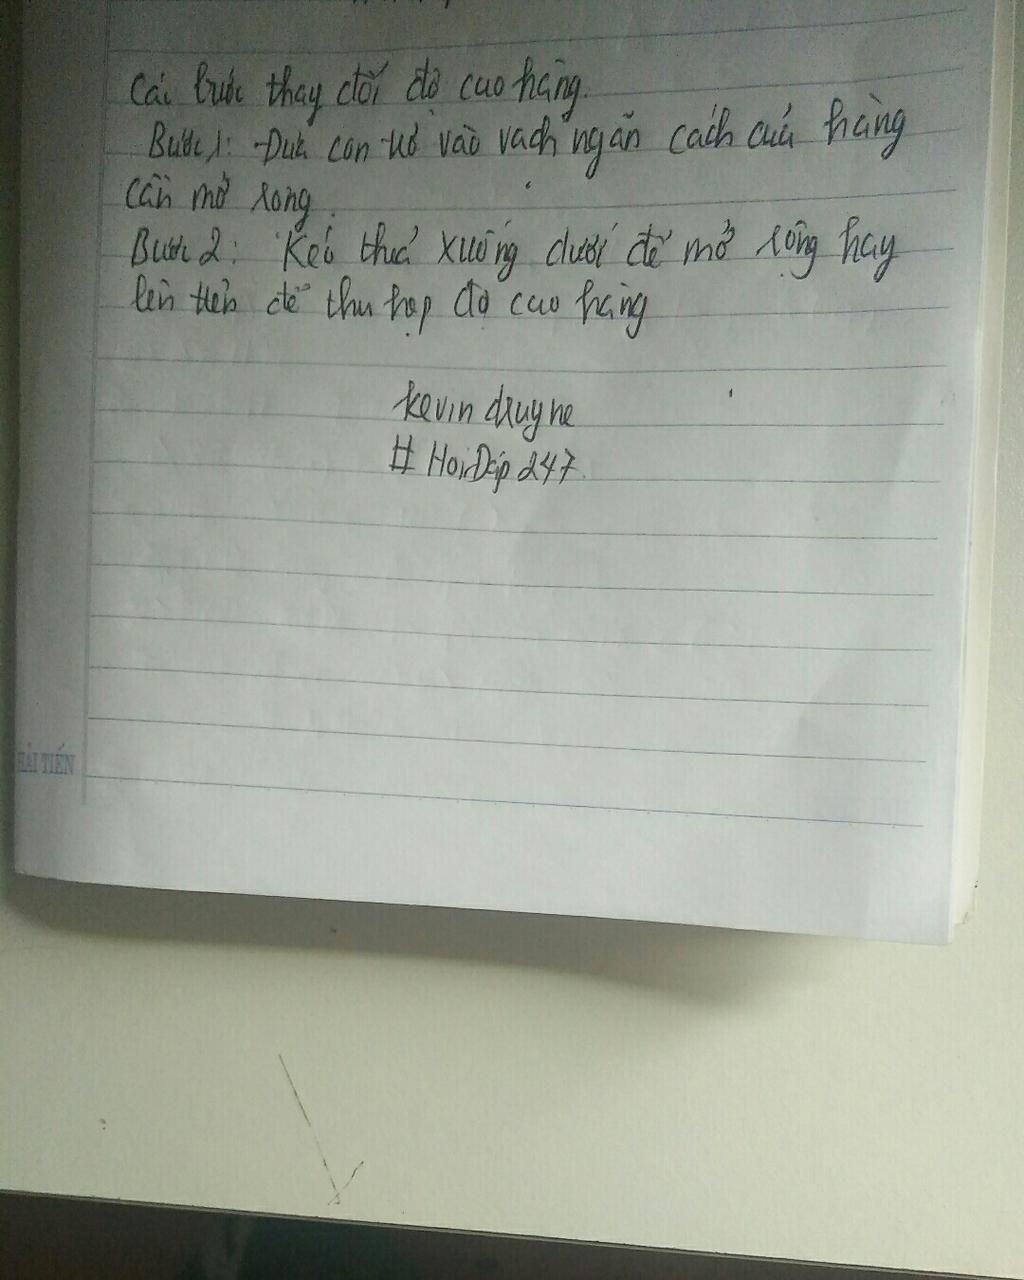 Các bước thay đổi độ cao hàng.
Bước 1: -Đưa con trỏ vào vạch ngăn cách của hàng
cần mở rộng.
Bước 2: Kéo thả xuống dưới để mở rộng hay
lên trên để thu hẹp độ cao hàng
kevin druyne
# HoiDap 247.
HẢI TIẾN